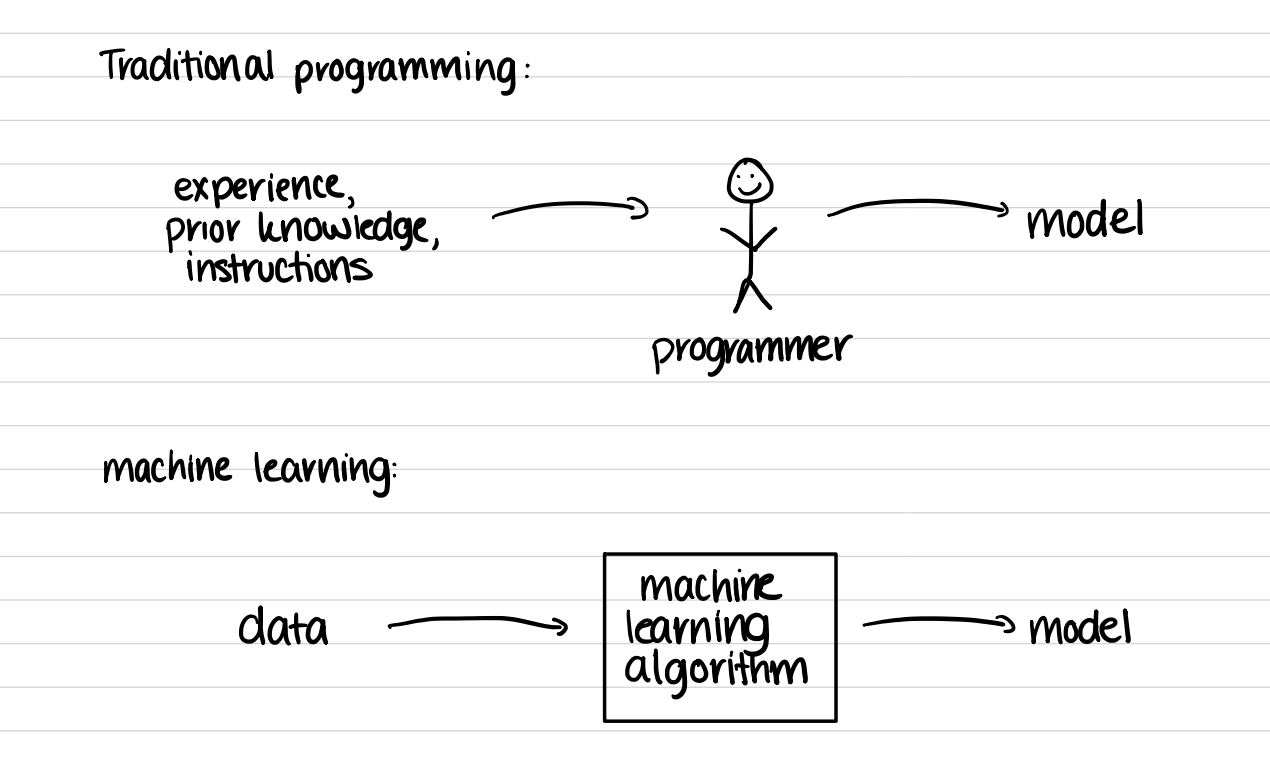 Traditional programming:
experience,
prior knowledge,
instructions
model
programmer
machine learning:
data
machine
learning
algorithm
model